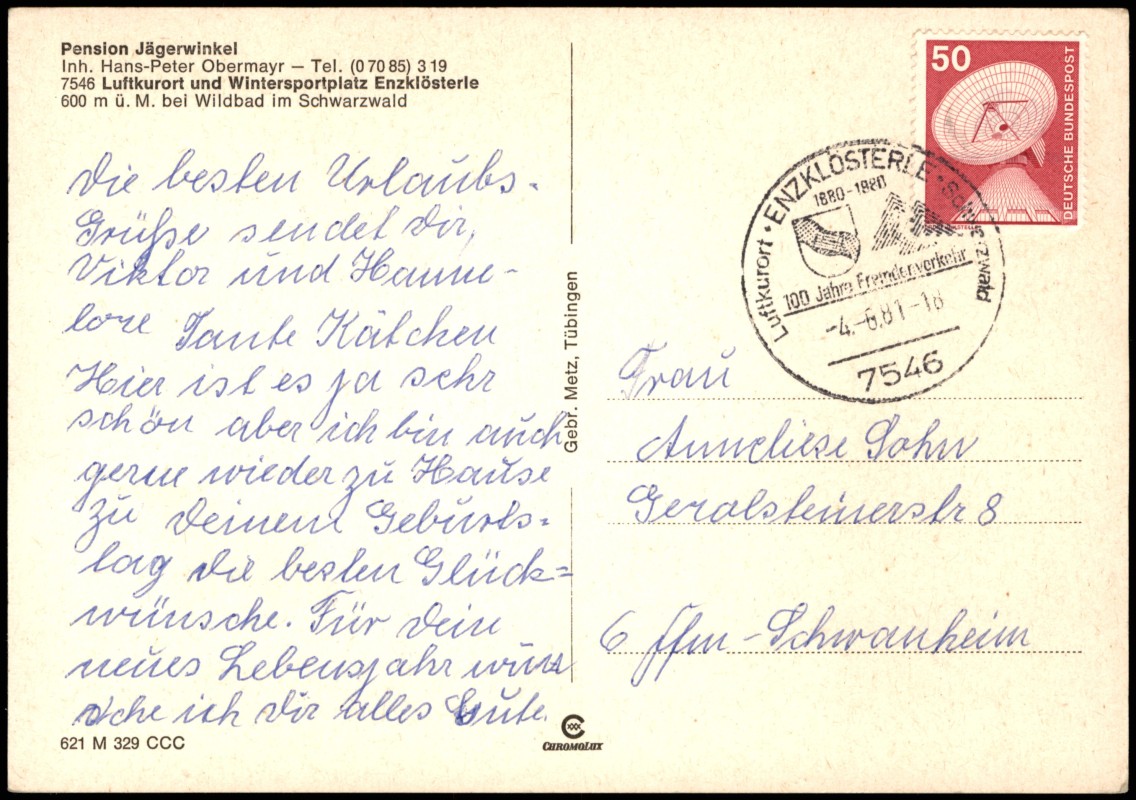 Pension Jägerwinkel
Inh. Hans-Peter Obermayr — Tel. (0 70 85) 3 19
7546 Luftkurort und Wintersportplatz Enzklösterle
600 m ü. M. bei Wildbad im Schwarzwald
Die besten Urlaubs-
Grüße sendet Dir,
Viktor und Hanne-
lore Tante Kätchen
Hier ist es ja sehr
schön aber ich bin auch
gerne wieder zu Hause
zu Deinem Geburts-
tag die besten Glück=
wünsche. Für Dein
neues Lebensjahr wün
sche ich Dir alles Gute.
621 M 329 CCC
Gebr. Metz, Tübingen
CHROMOLUX
50
DEUTSCHE BUNDESPOST
Luftkurort · ENZKLÖSTERLE · Schwarzwald
1880-1980
100 Jahre Fremdenverkehr
-4.-6.81-18
7546
Frau
Anneliese Sohn
Gerolsteinerstr 8
6 Ffm - Schwanheim